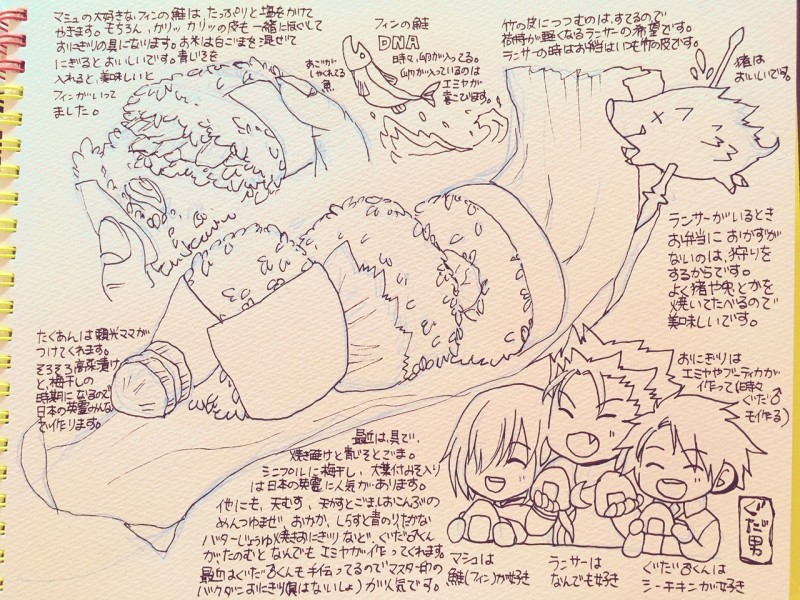 マシュの大好きな、フィンの鮭は、たっぷりと塩をかけて
やきます。もちろん、カリッカリッの皮も一緒にほぐして
おにぎりの具になります。お米は白ごまを混ぜて
にぎるとおいしいです。青じそを
入れると、美味しいと
フィンがいって
ました。
フィンの鮭
DNA
時々、卵が入ってる。
卵が入っているのは
エミヤが
喜こびます。
あごが
しゃくれてる
魚。
竹の皮につつむのは、すてるので
荷物が軽くなるランサーの希望です。
ランサーの時はお弁当はいつも竹の皮です。
猪は
おいしいです。
ランサーがいるとき
お弁当におかずが
ないのは、狩りを
するからです。
よく猪や兎とかを
焼いてたべるので
美味しいです。
たくあんは頼光ママが
つけてくれます。
そろそろ高菜漬け
と、梅干しの
時期になるので
日本の英霊みんな
で作ります。
おにぎりは
エミヤやブーティカが
作って(時々
ぐだ♂
も作る)
最近は、具で、
焼き鮭けと青じそとごま。
シンプルに梅干し、大葉付みそ入り
は日本の英霊に人気があります。
他にも、天むす、天かすとごましおこんぶの
めんつゆまぜ、おかか、しらすと青のりたかな
バターじょうゆ焼きおにぎりなど、ぐだおくん
が、たのむとなんでもエミヤが作ってくれます。
最近はぐだおくんも手伝ってるのでマスター印の
バクダンおにぎり(具はないしょ)が人気です。
マシュは
鮭(フィン)が好き
ランサーは
なんでも好き
ぐだおくんは
シーチキンが好き
ぐだ男